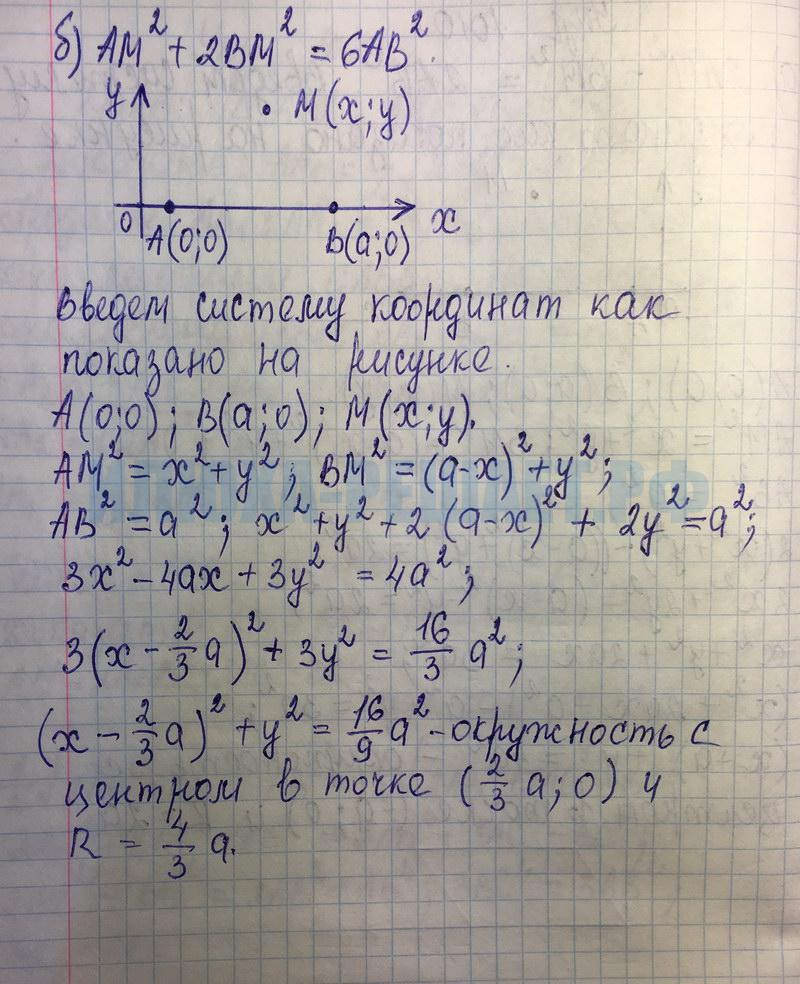 б) AM² + 2BM² = 6AB².
y
• M(x;y)
0
A(0;0)
B(a;0)
x
Введем систему координат как
показано на рисунке.
A(0;0); B(a;0); M(x;y).
AM² = x² + y²; BM² = (a-x)² + y²;
AB² = a²; x² + y² + 2(a-x)² + 2y² = a²;
3x² - 4ax + 3y² = 4a²;
3(x - 2/3 a)² + 3y² = 16/3 a²;
(x - 2/3 a)² + y² = 16/9 a² - окружность с
центром в точке (2/3 a; 0) и
R = 4/3 a.